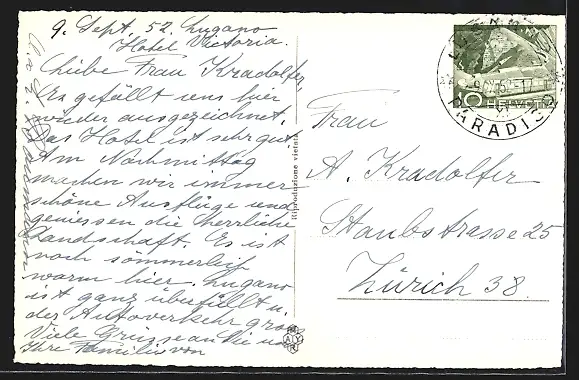 9. Sept. 52. Lugano
Hotel Victoria.
Liebe Frau Kradolfer,
Es gefällt uns hier
wieder ausgezeichnet.
Das Hotel ist sehr gut.
Am Nachmittag
machen wir immer
schöne Ausflüge und
geniessen die herrliche
Landschaft. Es ist
noch sommerlich
warm hier. Lugano
ist ganz überfüllt u.
der Autoverkehr gross
Viele Grüsse an Sie und
Ihre Familie von
Riproduzione vietata
Frau
A. Kradolfer
Staubstrasse 25
Zürich 38.
10 HELVETIA
PARADISO